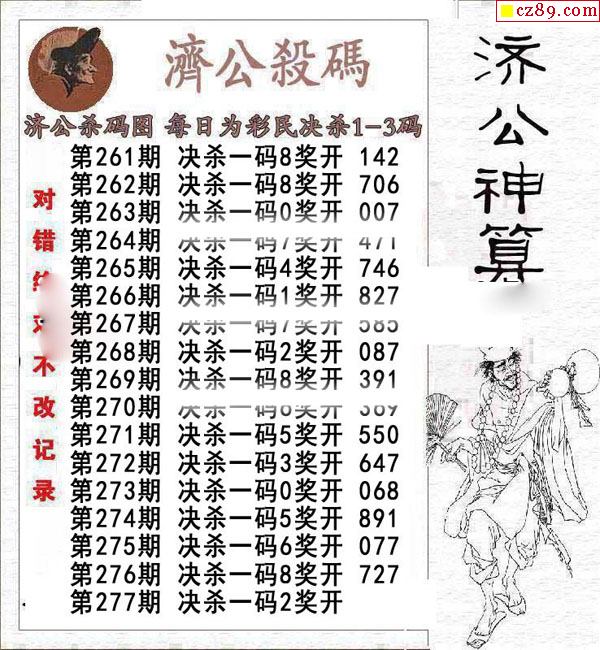 cz89.com
濟公殺碼
济公杀码图 每日为彩民决杀1-3码
第261期 决杀一码8奖开 142
第262期 决杀一码8奖开 706
第263期 决杀一码0奖开 007
第264期 决杀一码7奖开 471
第265期 决杀一码4奖开 746
第266期 决杀一码1奖开 827
第267期 决杀一码7奖开 585
第268期 决杀一码2奖开 087
第269期 决杀一码8奖开 391
第270期 决杀一码奖开 369
第271期 决杀一码5奖开 550
第272期 决杀一码3奖开 647
第273期 决杀一码0奖开 068
第274期 决杀一码5奖开 891
第275期 决杀一码6奖开 077
第276期 决杀一码8奖开 727
第277期 决杀一码2奖开
对错不改记录
济公神算